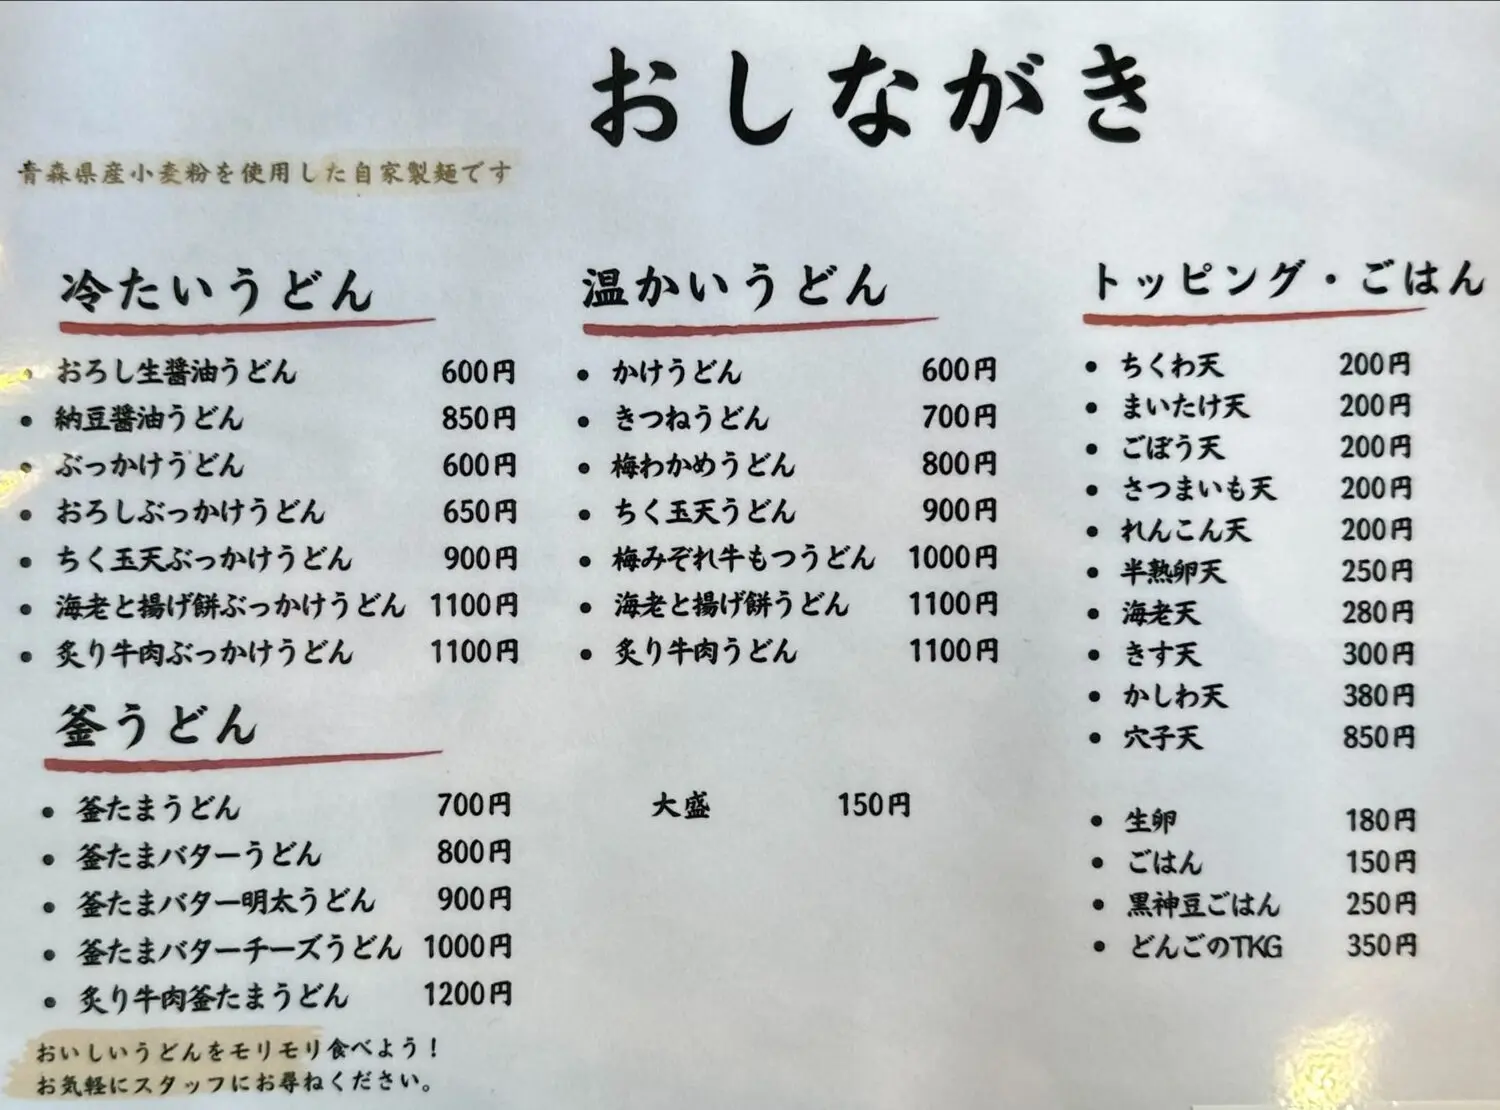 おしながき
青森県産小麦粉を使用した自家製麺です
冷たいうどん
おろし生醤油うどん 600円
納豆醤油うどん 850円
ぶっかけうどん 600円
おろしぶっかけうどん 650円
ちく玉天ぶっかけうどん 900円
海老と揚げ餅ぶっかけうどん 1100円
炙り牛肉ぶっかけうどん 1100円
釜うどん
釜たまうどん 700円
釜たまバターうどん 800円
釜たまバター明太うどん 900円
釜たまバターチーズうどん 1000円
炙り牛肉釜たまうどん 1200円
おいしいうどんをモリモリ食べよう！
お気軽にスタッフにお尋ねください。
温かいうどん
かけうどん 600円
きつねうどん 700円
梅わかめうどん 800円
ちく玉天うどん 900円
梅みぞれ牛もつうどん 1000円
海老と揚げ餅うどん 1100円
炙り牛肉うどん 1100円
大盛 150円
トッピング・ごはん
ちくわ天 200円
まいたけ天 200円
ごぼう天 200円
さつまいも天 200円
れんこん天 200円
半熟卵天 250円
海老天 280円
きす天 300円
かしわ天 380円
穴子天 850円
生卵 180円
ごはん 150円
黒神豆ごはん 250円
どんごのTKG 350円